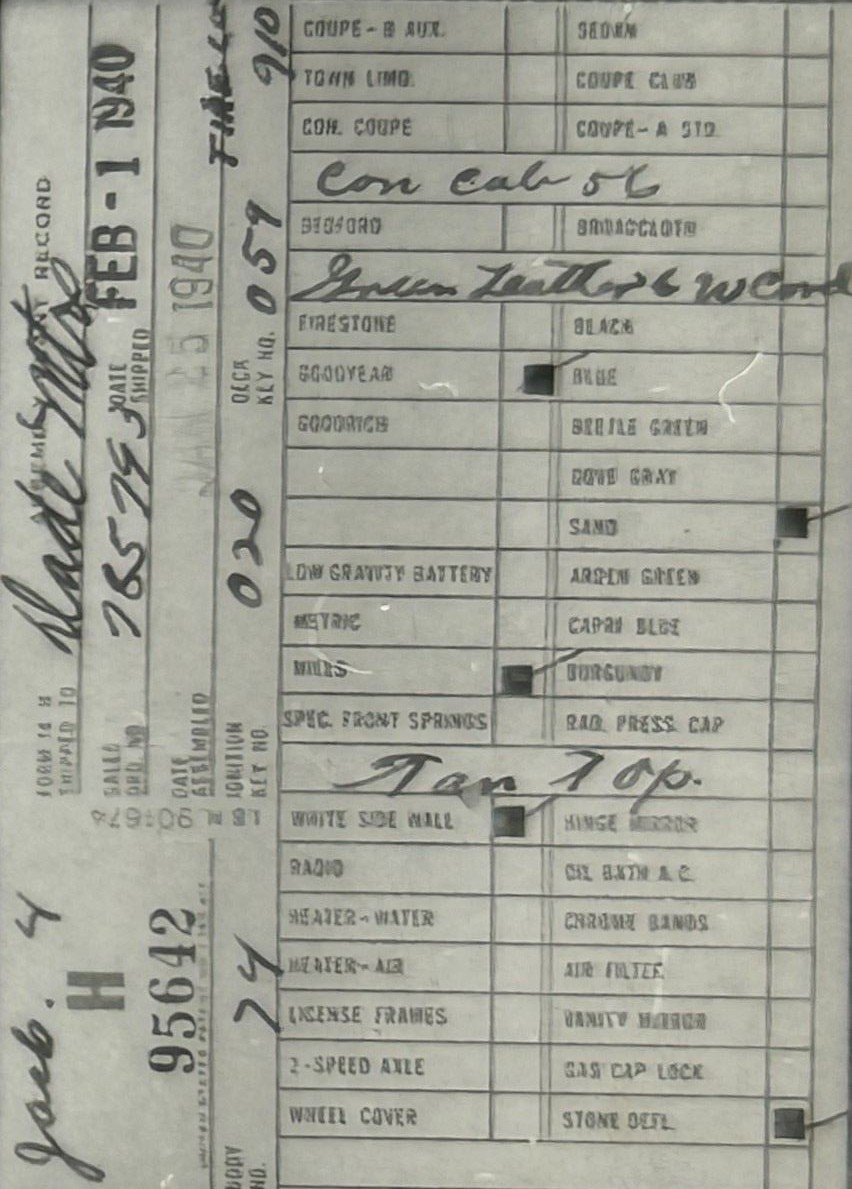 ASSEMBLY RECORD
FORM 14 H
SHIPPED TO
SALES ORD. NO. 785793
DATE SHIPPED FEB-1 1940
DATE ASSEMBLED JAN 25 1940
IGNITION KEY NO. 020
DECK KEY NO. 059
910
Jack. 4
H
95642
BODY NO. 74
COUPE-B AUX. SEDAN
TOWN LIMO. COUPE CLUB
CON. COUPE COUPE-A STD.
Con Cab 56
BEDFORD BROADCLOTH
Green Leather & W Cord
FIRESTONE BLACK
GOODYEAR BLUE
GOODRICH BEETLE GREEN
DOVE GRAY
SAND
LOW GRAVITY BATTERY ASPEN GREEN
METRIC CAPRI BLUE
MILES BURGUNDY
SPEC. FRONT SPRINGS RAD. PRESS. CAP
Tan Top.
WHITE SIDE WALL HINGE MIRROR
RADIO OIL BATH A.C.
HEATER-WATER CHROME BANDS
HEATER-AIR AIR FILTER
LICENSE FRAMES VANITY MIRROR
2-SPEED AXLE GAS CAP LOCK
WHEEL COVER STONE DEFL.